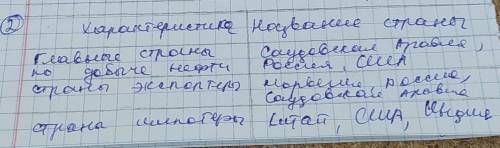 2 Характеристика Название страны
Главные страны Саудовская Аравия,
по добыче нефти Россия, США
страны экспортеры Норвегия Россия,
Саудовская Аравия
страна импотеры Китай, США, Индия